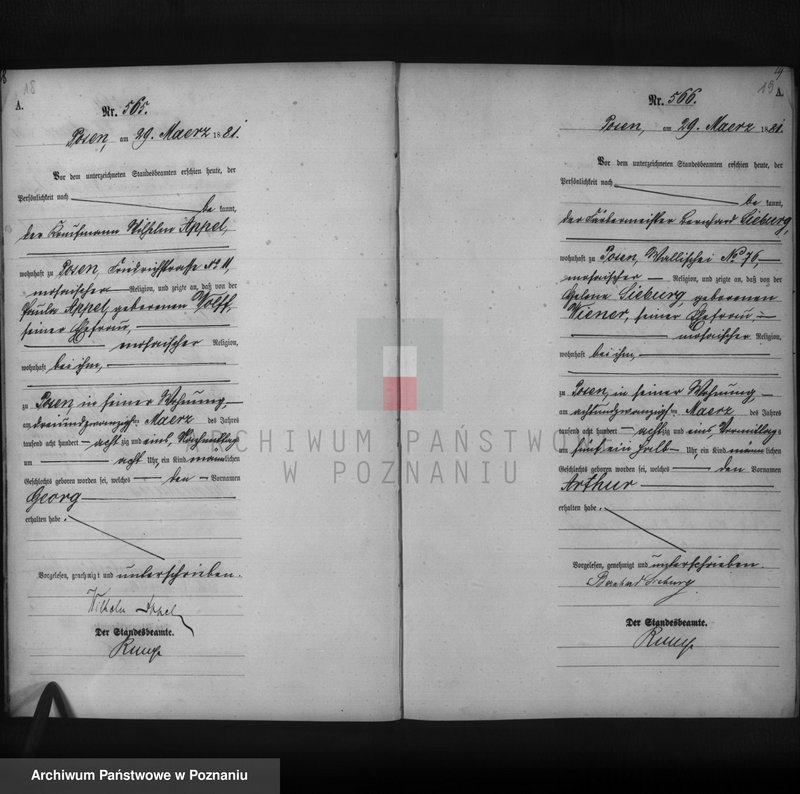 18
A.
Nr. 565.
Posen, am 29. Maerz 1881.
Vor dem unterzeichneten Standesbeamten erschien heute, der
Persönlichkeit nach
be kannt,
der Kaufmann Wilhelm Appel,
wohnhaft zu Posen, Friedrichstrasse No 11,
mosaischer Religion, und zeigte an, daß von der
Paula Appel, geborenen Wolff,
seiner Ehefrau,
mosaischer Religion,
wohnhaft bei ihm,
zu Posen, in seiner Wohnung
am dreiundzwanzigsten Maerz des Jahres
tausend acht hundert achtzig und eins, Nachmittags
um acht Uhr, ein Kind männlichen
Geschlechts geboren worden sei, welches den Vornamen
Georg
erhalten habe.
Vorgelesen, genehmigt und unterschrieben.
Wilhelm Appel
Der Standesbeamte.
19
A.
Nr. 566.
Posen, am 29. Maerz 1881.
Vor dem unterzeichneten Standesbeamten erschien heute, der
Persönlichkeit nach
be kannt,
der Färbermeister Bernhard Sieburg,
wohnhaft zu Posen, Wallischei No 76,
mosaischer Religion, und zeigte an, daß von der
Helene Sieburg, geborenen
Wiener, seiner Ehefrau,
mosaischer Religion,
wohnhaft bei ihm,
zu Posen, in seiner Wohnung
am achtundzwanzigsten Maerz des Jahres
tausend acht hundert achtzig und eins, Vormittags
um fünf ein halb Uhr, ein Kind männlichen
Geschlechts geboren worden sei, welches den Vornamen
Arthur
erhalten habe.
Vorgelesen, genehmigt und unterschrieben.
Bernhard Sieburg
Der Standesbeamte.
ARCHIWUM PAŃSTWOWE
W POZNANIU
Archiwum Państwowe w Poznaniu